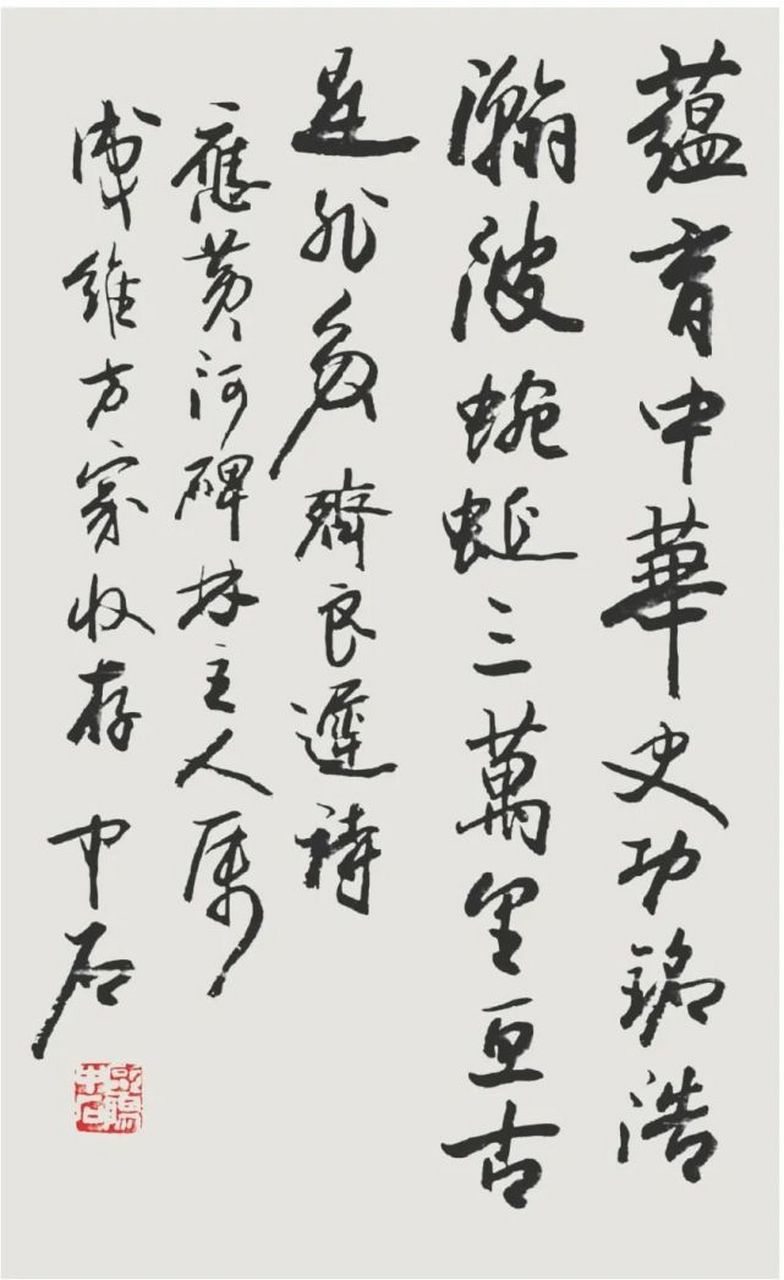 蘊育中華史功銘浩
瀚波蜿蜒三萬里亘古
是非多 齊良遲詩
應黄河碑林主人属
維方家收存 中石
歐陽中石